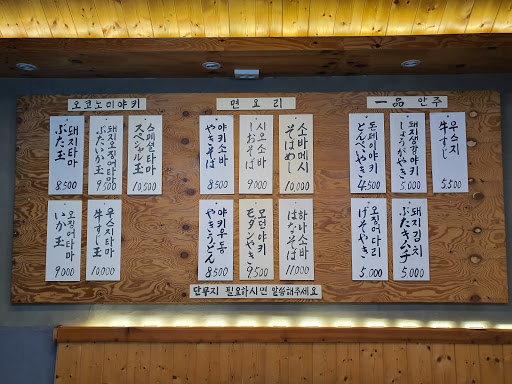 오코노미야키
돼지타마
ぶた玉
8,500
돼지오징어타마
ぶたいか玉
9,500
스페셜타마
スペシャル玉
10,500
오징어타마
いか玉
9,000
우스지타마
牛すじ玉
10,000
면요리
야키소바
やきそば
8,500
시오소바
しおそば
9,000
소바메시
そばめし
10,000
야키우동
やきうどん
8,500
모던야키
モダンやき
9,500
하나소바
はなそば
11,000
一品 안주
돈페이야키
とんぺいやき
4,500
돼지생강야키
しょうがやき
5,000
우스지
牛すじ
5,500
오징어다리
げそやき
5,000
돼지김치
ぶたキムチ
5,000
단무지 필요하시면 말씀해주세요